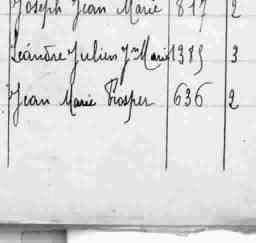 Joseph Jean Marie 817 2
Léandre Julien Jn Marie 1385 3
Jean Marie Prosper 636 2